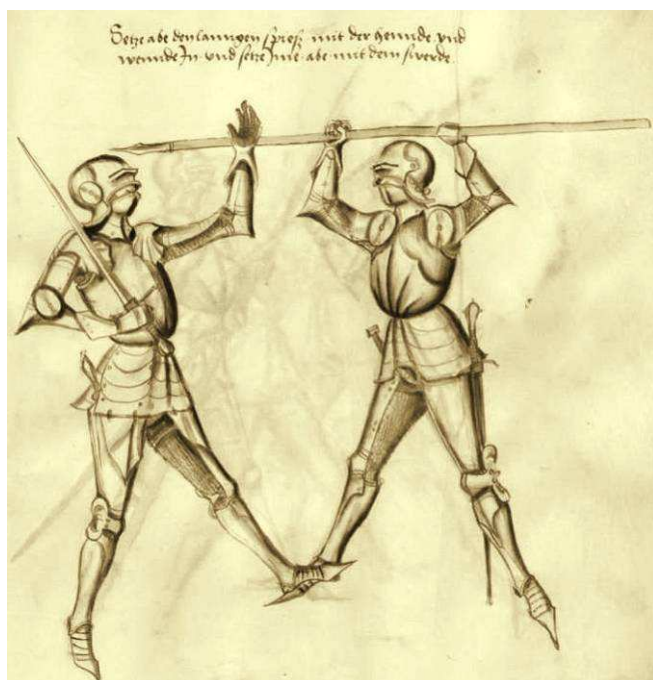 Setze abe den lanngen spyeß mit der hennde vnd
wennde In vnd setze Ime abe mit dem swerde